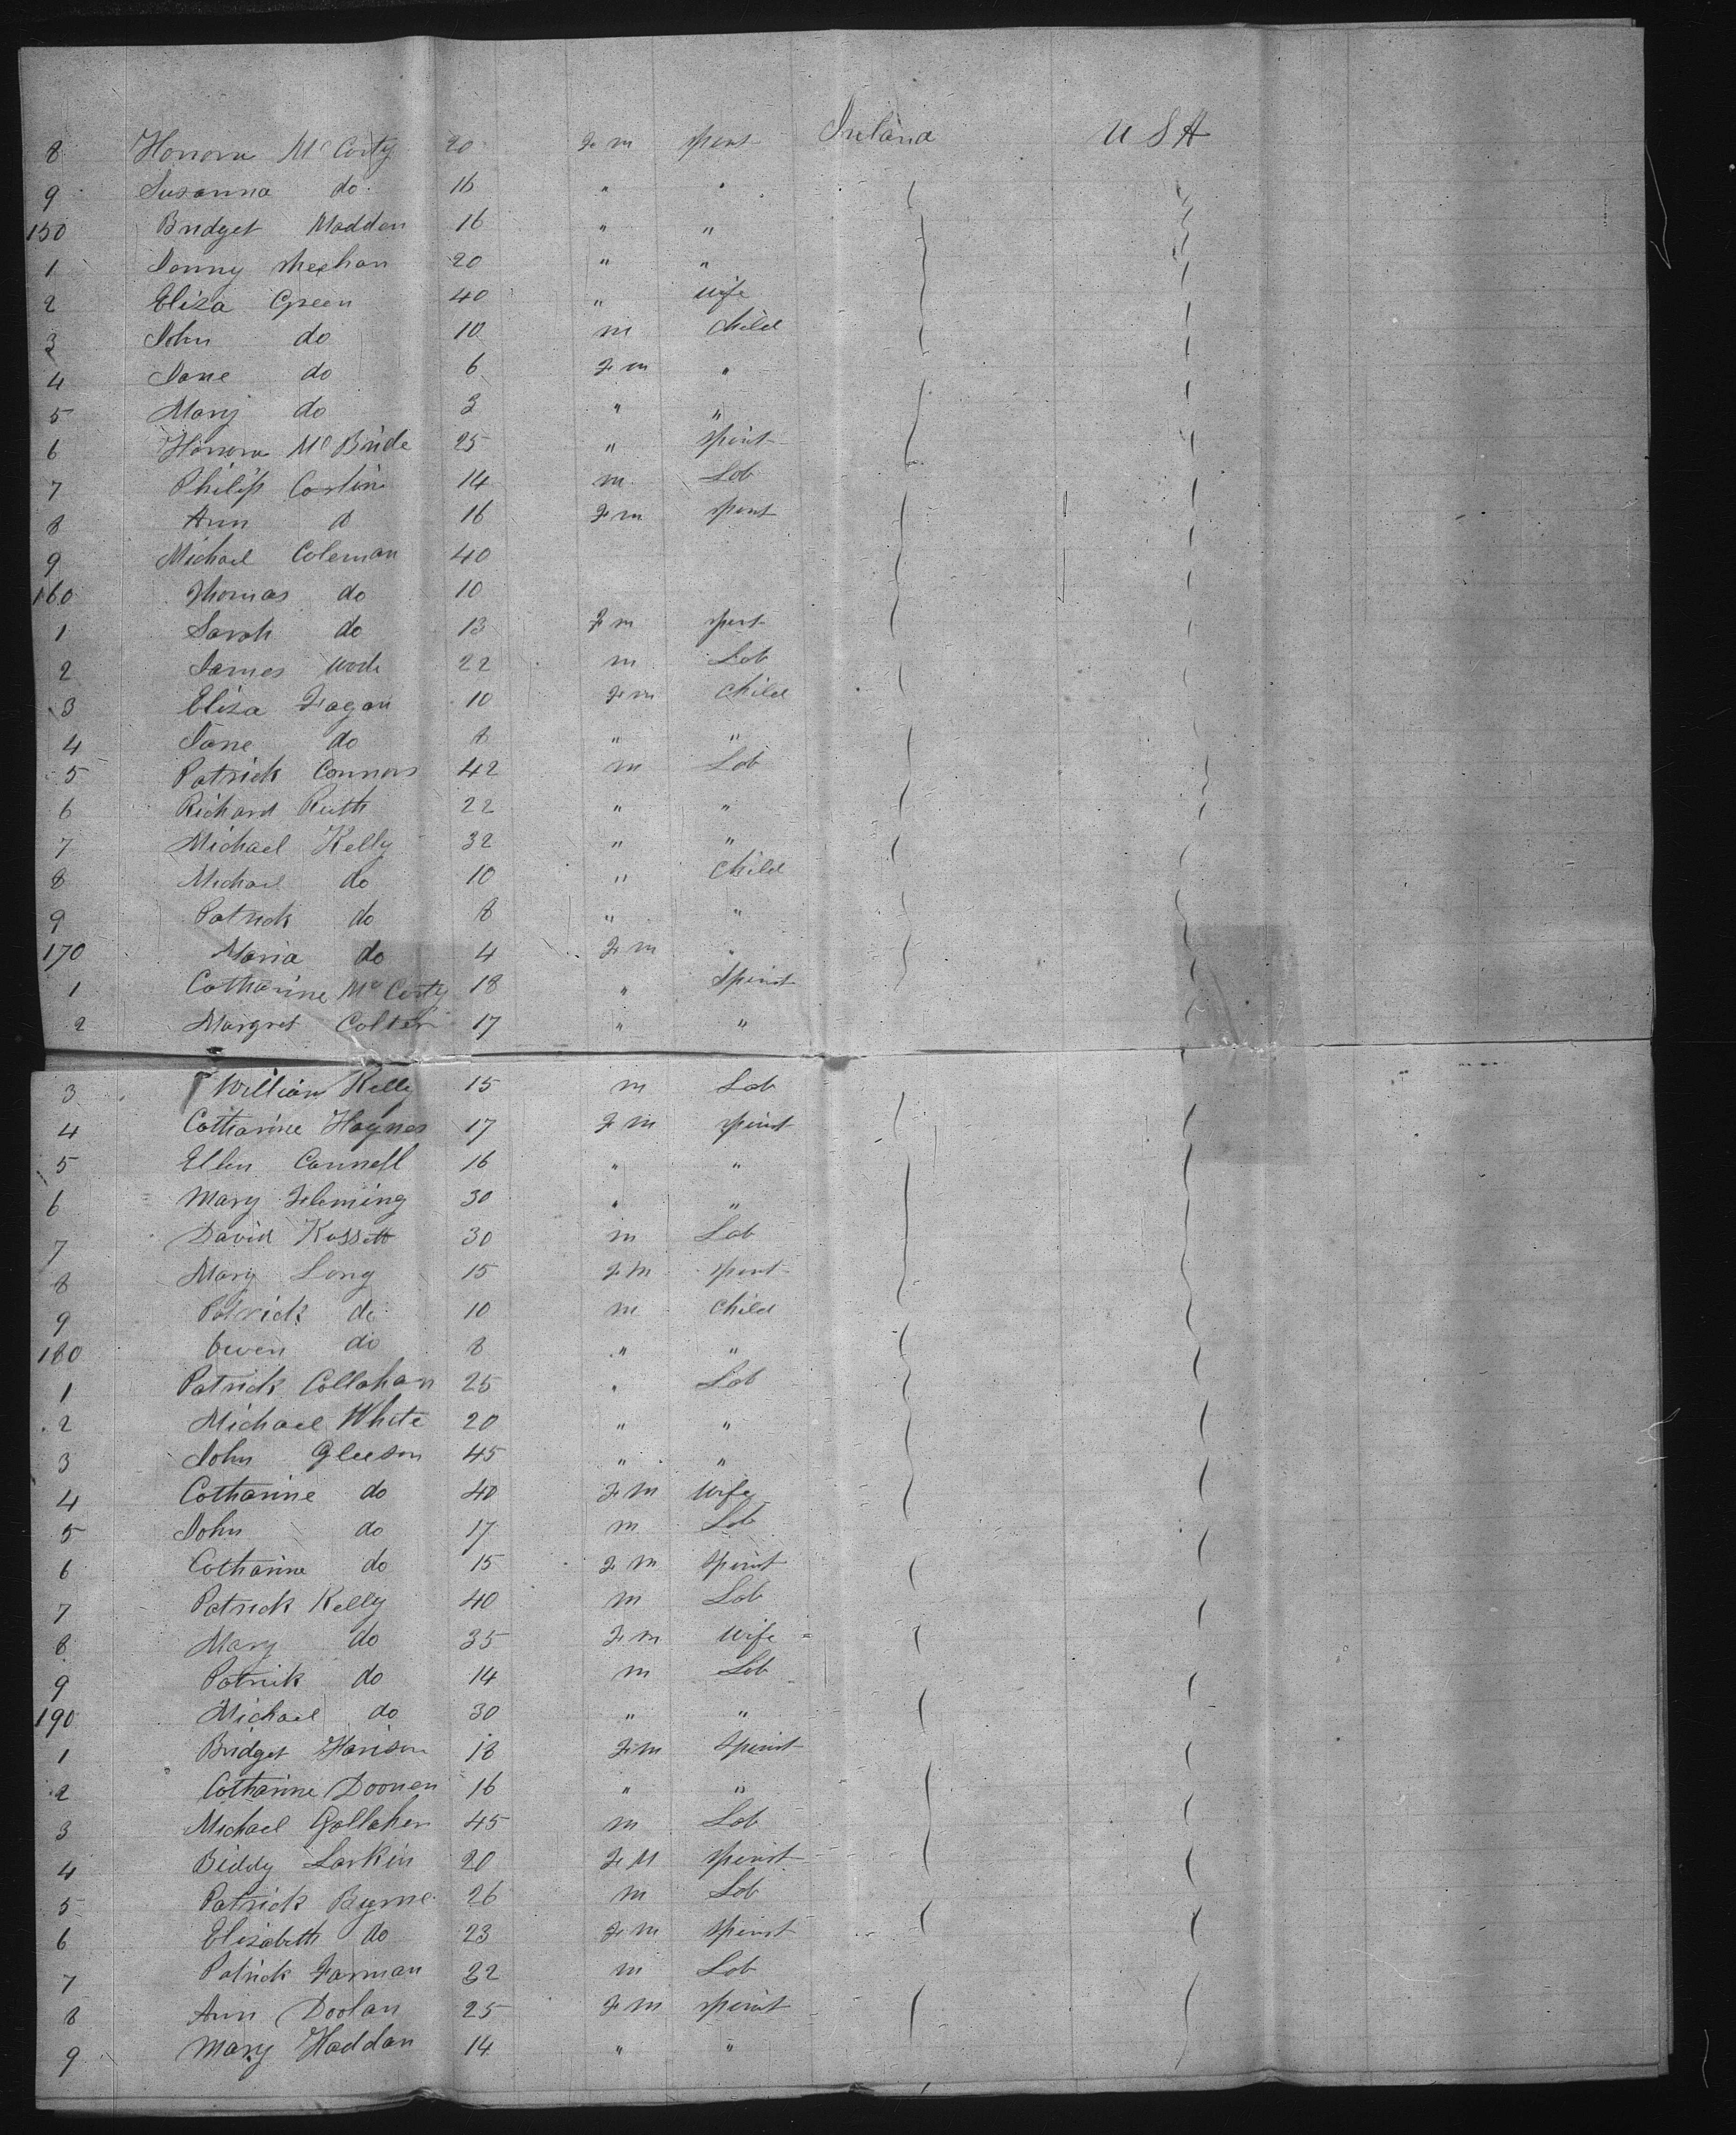 8 Honora McCarty 20 Fe m spinst Ireland U S A
9 Susanna do 16 " "
150 Bridget Madden 16 " "
1 Jonny Meehan 20 " "
2 Eliza Green 40 " Wife
3 John do 10 m Child
4 Jane do 6 Fe m "
5 Mary do 3 " "
6 Honora McBride 25 " Spinst
7 Philip Costin 14 m Lab
8 Ann d 16 Fe m spinst
9 Michael Coleman 40
160 Thomas do 10
1 Sarah do 13 Fe m spinst
2 James Wade 22 m Lab
3 Eliza Fagan 10 Fe m Child
4 Jane do 8 " "
5 Patrick Connors 42 m Lab
6 Richard Ruth 22 " "
7 Michael Kelly 32 " "
8 Michael do 10 " Child
9 Patrick do 8 " "
170 Maria do 4 Fe m "
1 Catharine McCarty 18 " Spinst
2 Margret Colter 17 " "
3 William Kelly 15 m Lab
4 Catharine Haynes 17 Fe m spinst
5 Ellen Connell 16 " "
6 Mary Fleming 30 " "
7 David 30 m Lab
8 Mary Long 15 Fe m spinst
9 Patrick do 10 m Child
180 Owen do 8 " "
1 Patrick Collahan 25 " Lab
2 Michael White 20 " "
3 John Gleeson 45 " "
4 Catharine do 40 Fe m Wife
5 John do 17 m Lab
6 Catharine do 15 Fe m Spinst
7 Patrick Kelly 40 m Lab
8 Mary do 35 Fe m Wife
9 Patrick do 14 m Lab
190 Michael do 30 " "
1 Bridget Harison 18 Fe m Spinst
2 Catharine Doonen 16 " "
3 Michael Gallaher 45 m Lab
4 Biddy Larkin 20 Fe M Spinst
5 Patrick Byrne 26 m Lab
6 Elizabeth do 23 Fe m Spinst
7 Patrick Farman 22 m Lab
8 Ann Doolan 25 Fe m spinst
9 Mary Haddan 14 " "